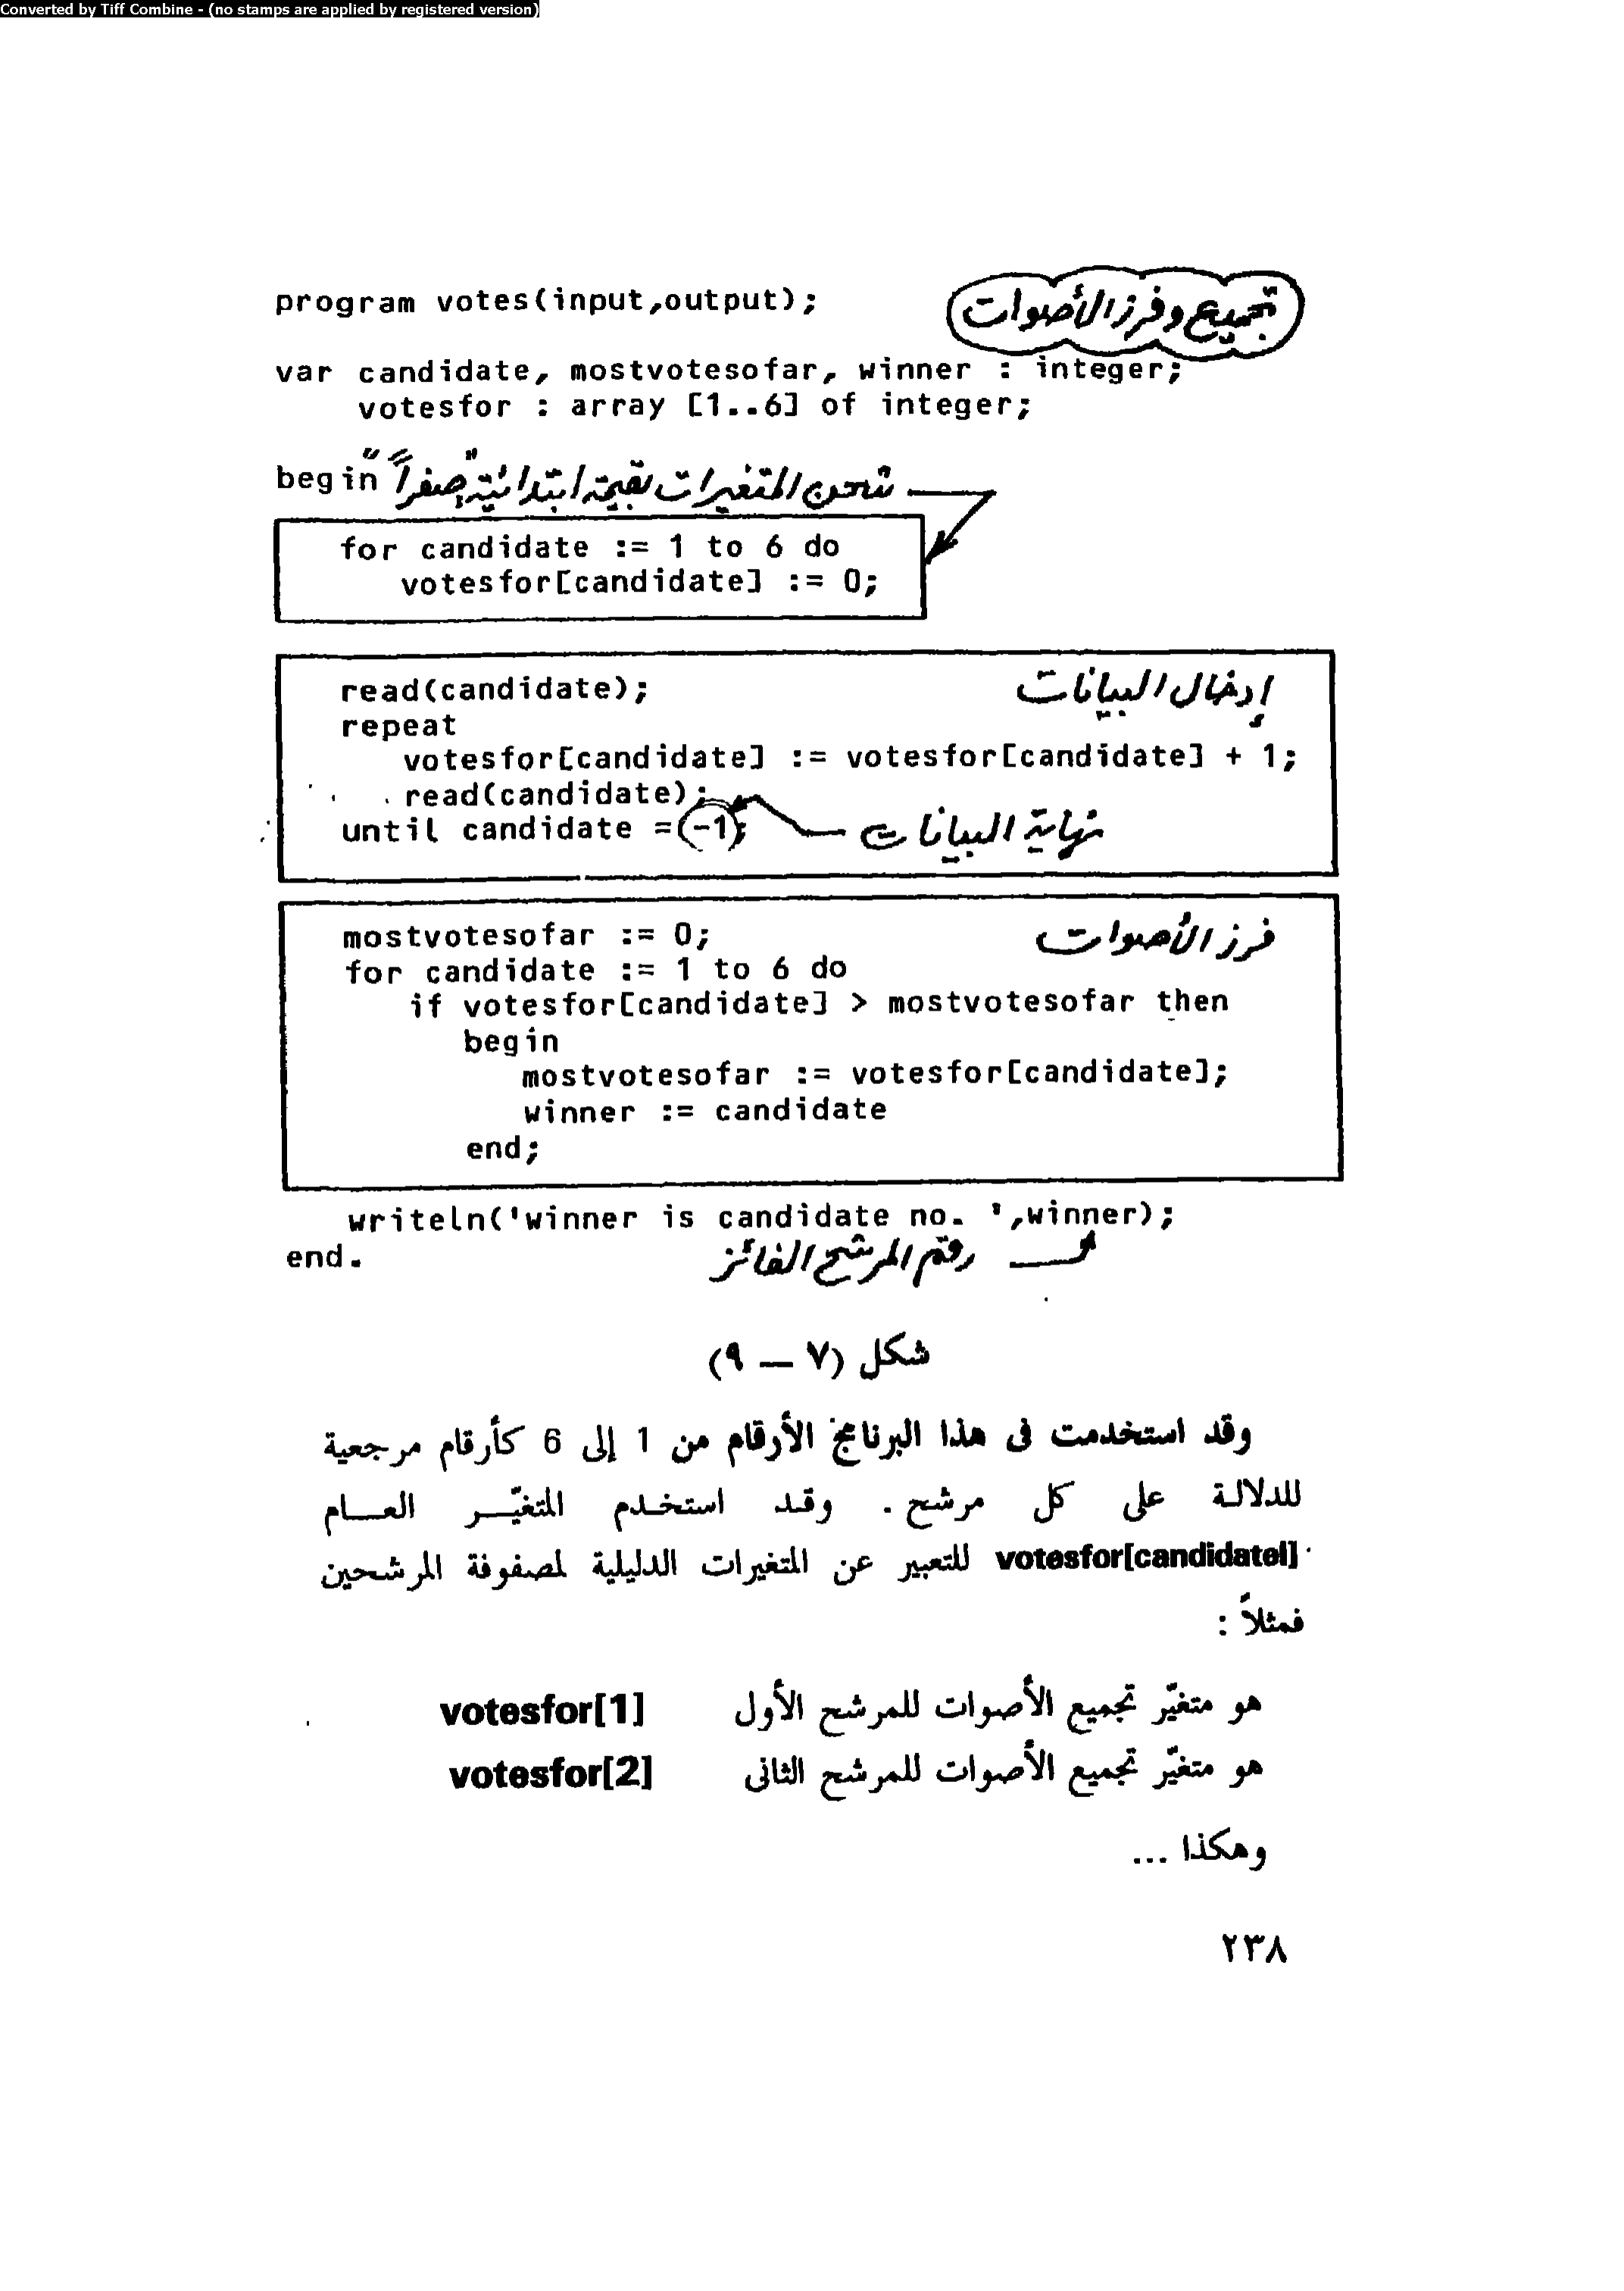 Converted by Tiff Combine - (no stamps are applied by registered version)
program votes(input,output);
تجميع وفرز الأصوات
var candidate, mostvotesofar, winner : integer;
votesfor : array [1..6] of integer;
begin
شحن المتغيرات بقيمة ابتدائية "صفراً"
for candidate := 1 to 6 do
votesfor[candidate] := 0;
read(candidate);
إدخال البيانات
repeat
votesfor[candidate] := votesfor[candidate] + 1;
read(candidate);
until candidate =(-1);
نهاية البيانات
mostvotesofar := 0;
فرز الأصوات
for candidate := 1 to 6 do
if votesfor[candidate] > mostvotesofar then
begin
mostvotesofar := votesfor[candidate];
winner := candidate
end;
writeln('winner is candidate no. ',winner);
end.
رقم المرشح الفائز
شكل (٧ – ٩)
وقد استخدمت فى هذا البرنامج الأرقام من 1 إلى 6 كأرقام مرجعية
للدلالة على كل مرشح . وقد استخدم المتغيّر العام
votesfor[candidatel] للتعبير عن المتغيرات الدليلية لمصفوفة المرشحين
فمثلاً :
هو متغيّر تجميع الأصوات للمرشح الأول votesfor[1]
هو متغيّر تجميع الأصوات للمرشح الثانى votesfor[2]
وهكذا ...
٢٣٨